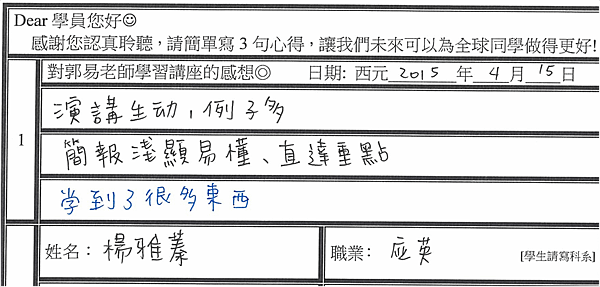 Dear 學員您好☺
感謝您認真聆聽，請簡單寫 3 句心得，讓我們未來可以為全球同學做得更好!
對郭易老師學習講座的感想◎ 日期: 西元 2015 年 4 月 15 日
1
演講生动，例子多
簡報淺顯易懂、直達重點
学到了很多東西
姓名： 楊雅蓁 職業： 应英 [學生請寫科系]